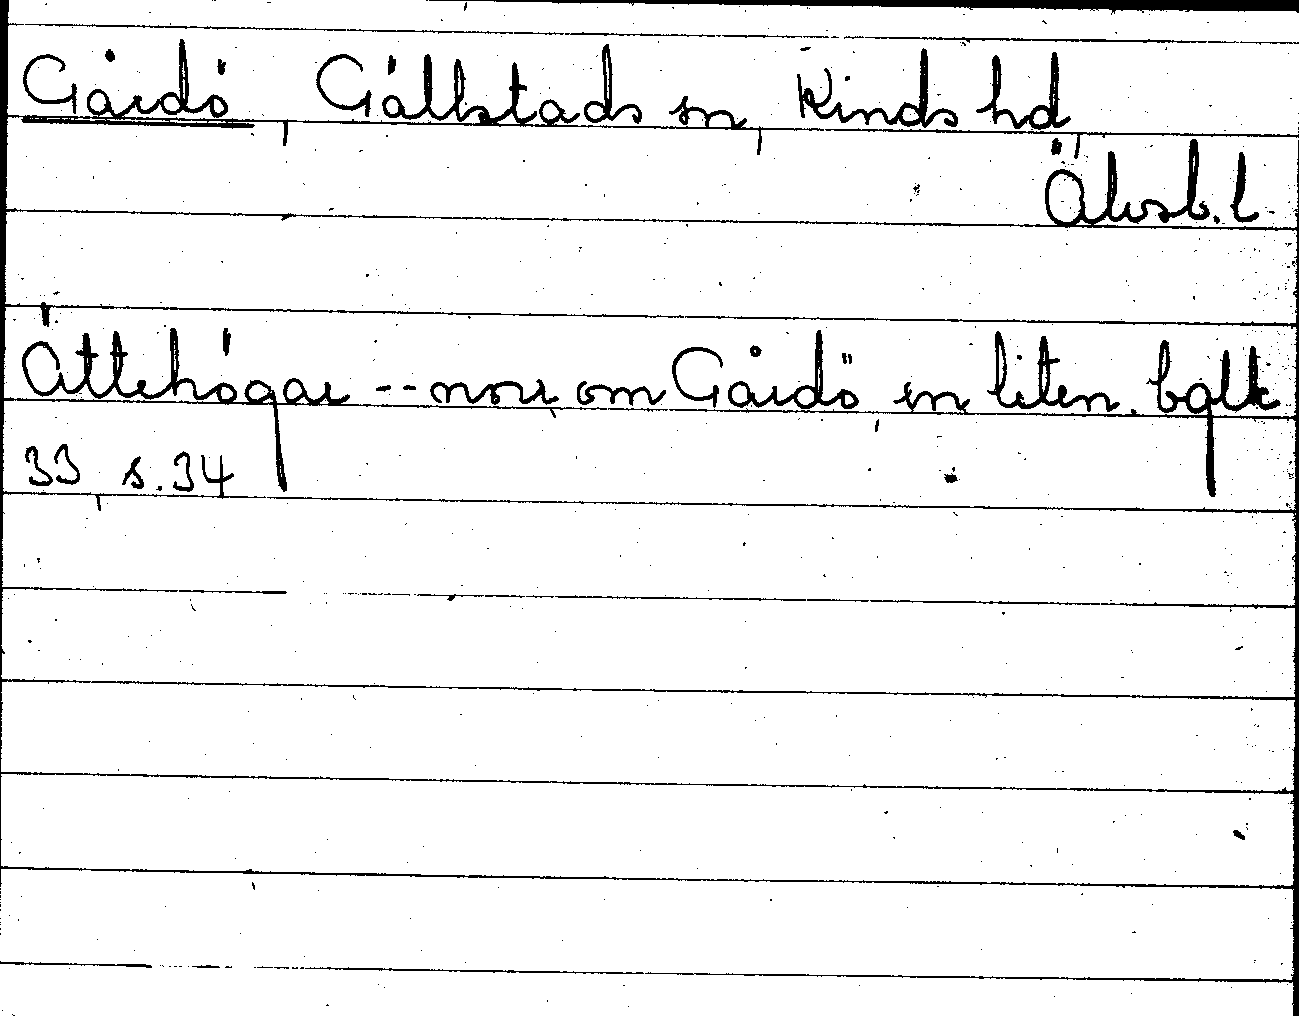 Gårdö, Gällstads sn, Kinds hd,
Älvsb. l
Ättehögar -- norr om Gårdö, en liten. bglk
33, s. 34